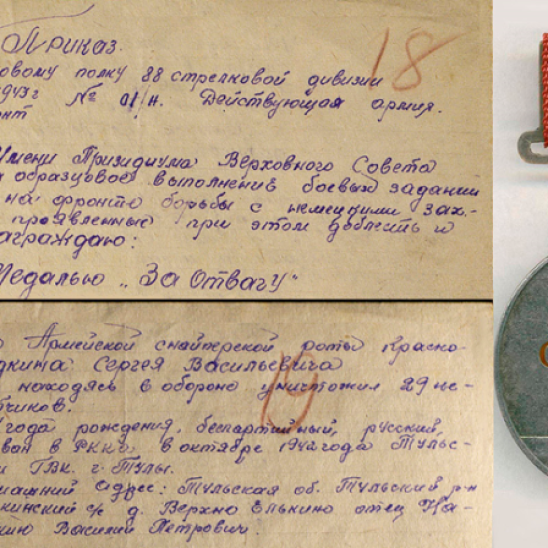 Приказ.
18
овому полку 88 стрелковой дивизии
1943 г № 01/н. Действующая армия.
онт
Имени Призидиума Верховного Совета
образцовое выполнение боевых задании
на фронте борьбы с немецкими зах.-
проявленные при этом доблесть и
аграждаю:
Медалью „За Отвагу"
Армейской снайперской роты Красно-
дкина Сергея Васильевича
находясь в обороне уничтожил 29 не-
19
чиков.
года рождения, беспартийный, русский,
ван в РККА в октябре 1942 года Тульс-
ГВК. г. Тулы.
машний адрес: Тульская об. Тульский р-н
кинский с/с д. Верхно Елькино отец На-
кино Василий Петрович.